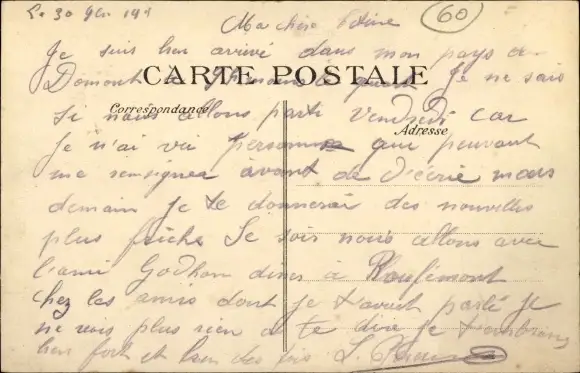 Le 30 9bre 191
60
Ma chère
Je suis bien arrivé dans mon pays de
Domont
CARTE POSTALE
Je ne sais
Correspondance
Adresse
si nous allons parti Vendredi car
Je n'ai vu personne qui peuvent
me renseignez avant de d'écrie mais
demain Je te donnerai des nouvelles
plus fraîche Ce soir nous allons avec
l'ami diner à
chez les amis dont je t'avait parlé Je
ne vois plus rien a te dire Je t'embrasse
bien fort et bien des fois L.